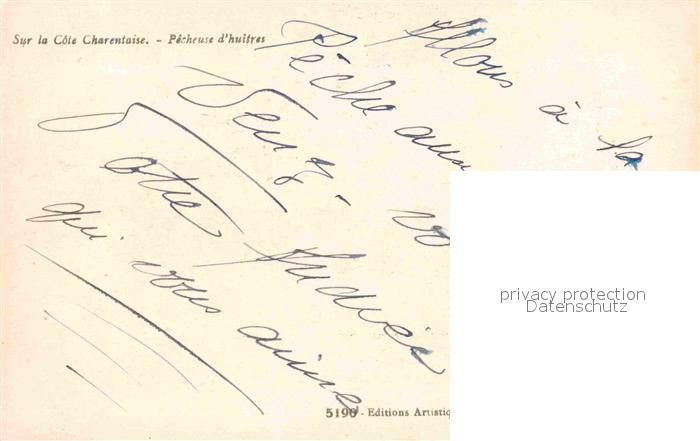 Sur la Côte Charentaise. - Pêcheuse d'huîtres
Allons à la
Pêche aux
Venez - vo
Votre Andrée
qui vous aime
5190 - Editions Artistiq
privacy protection
Datenschutz